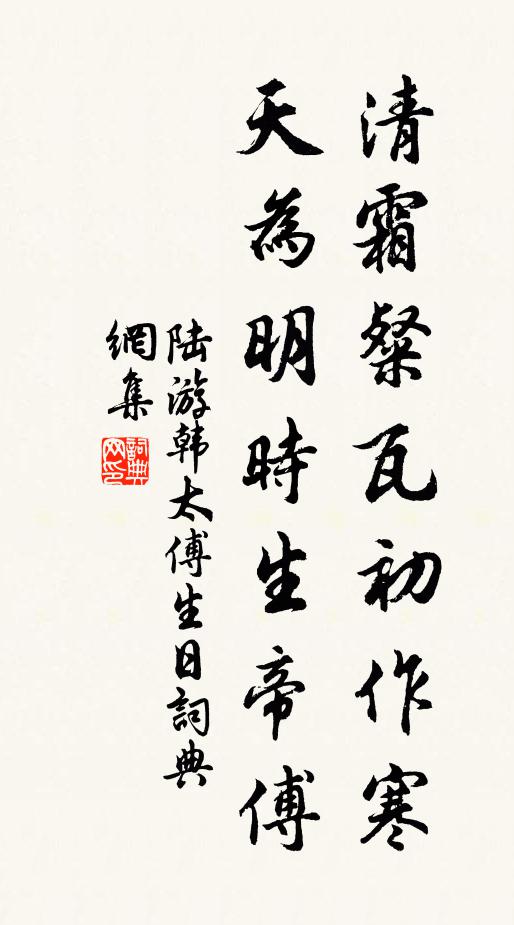 清霜粲瓦初作寒
天為明時生帝傅
陆游韩太傅生日詞典
網集
詞典網印